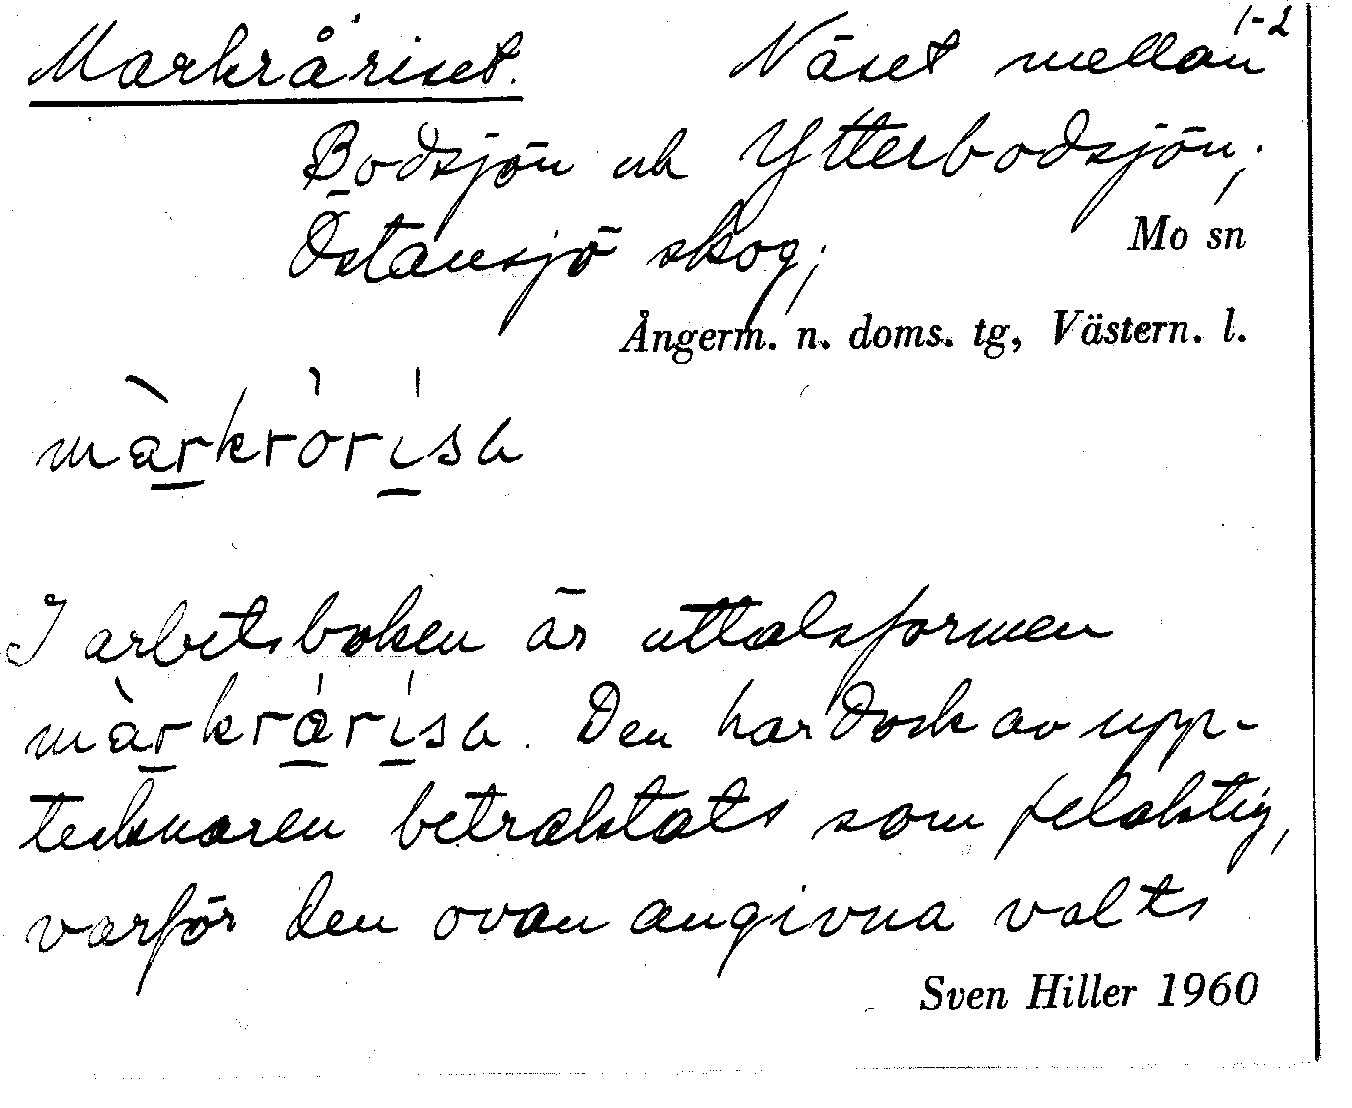 1-2
Markråriset. Näset mellan
Bodsjön och Ytterbodsjön;
Östansjö skog; Mo sn
Ångerm. n. doms. tg, Västern. l.
màrkrórísa
I arbetsboken är uttalsformen
màrkrárísa. Den har dock av upp-
tecknaren betraktats som felaktig,
varför den ovan angivna valts
Sven Hiller 1960